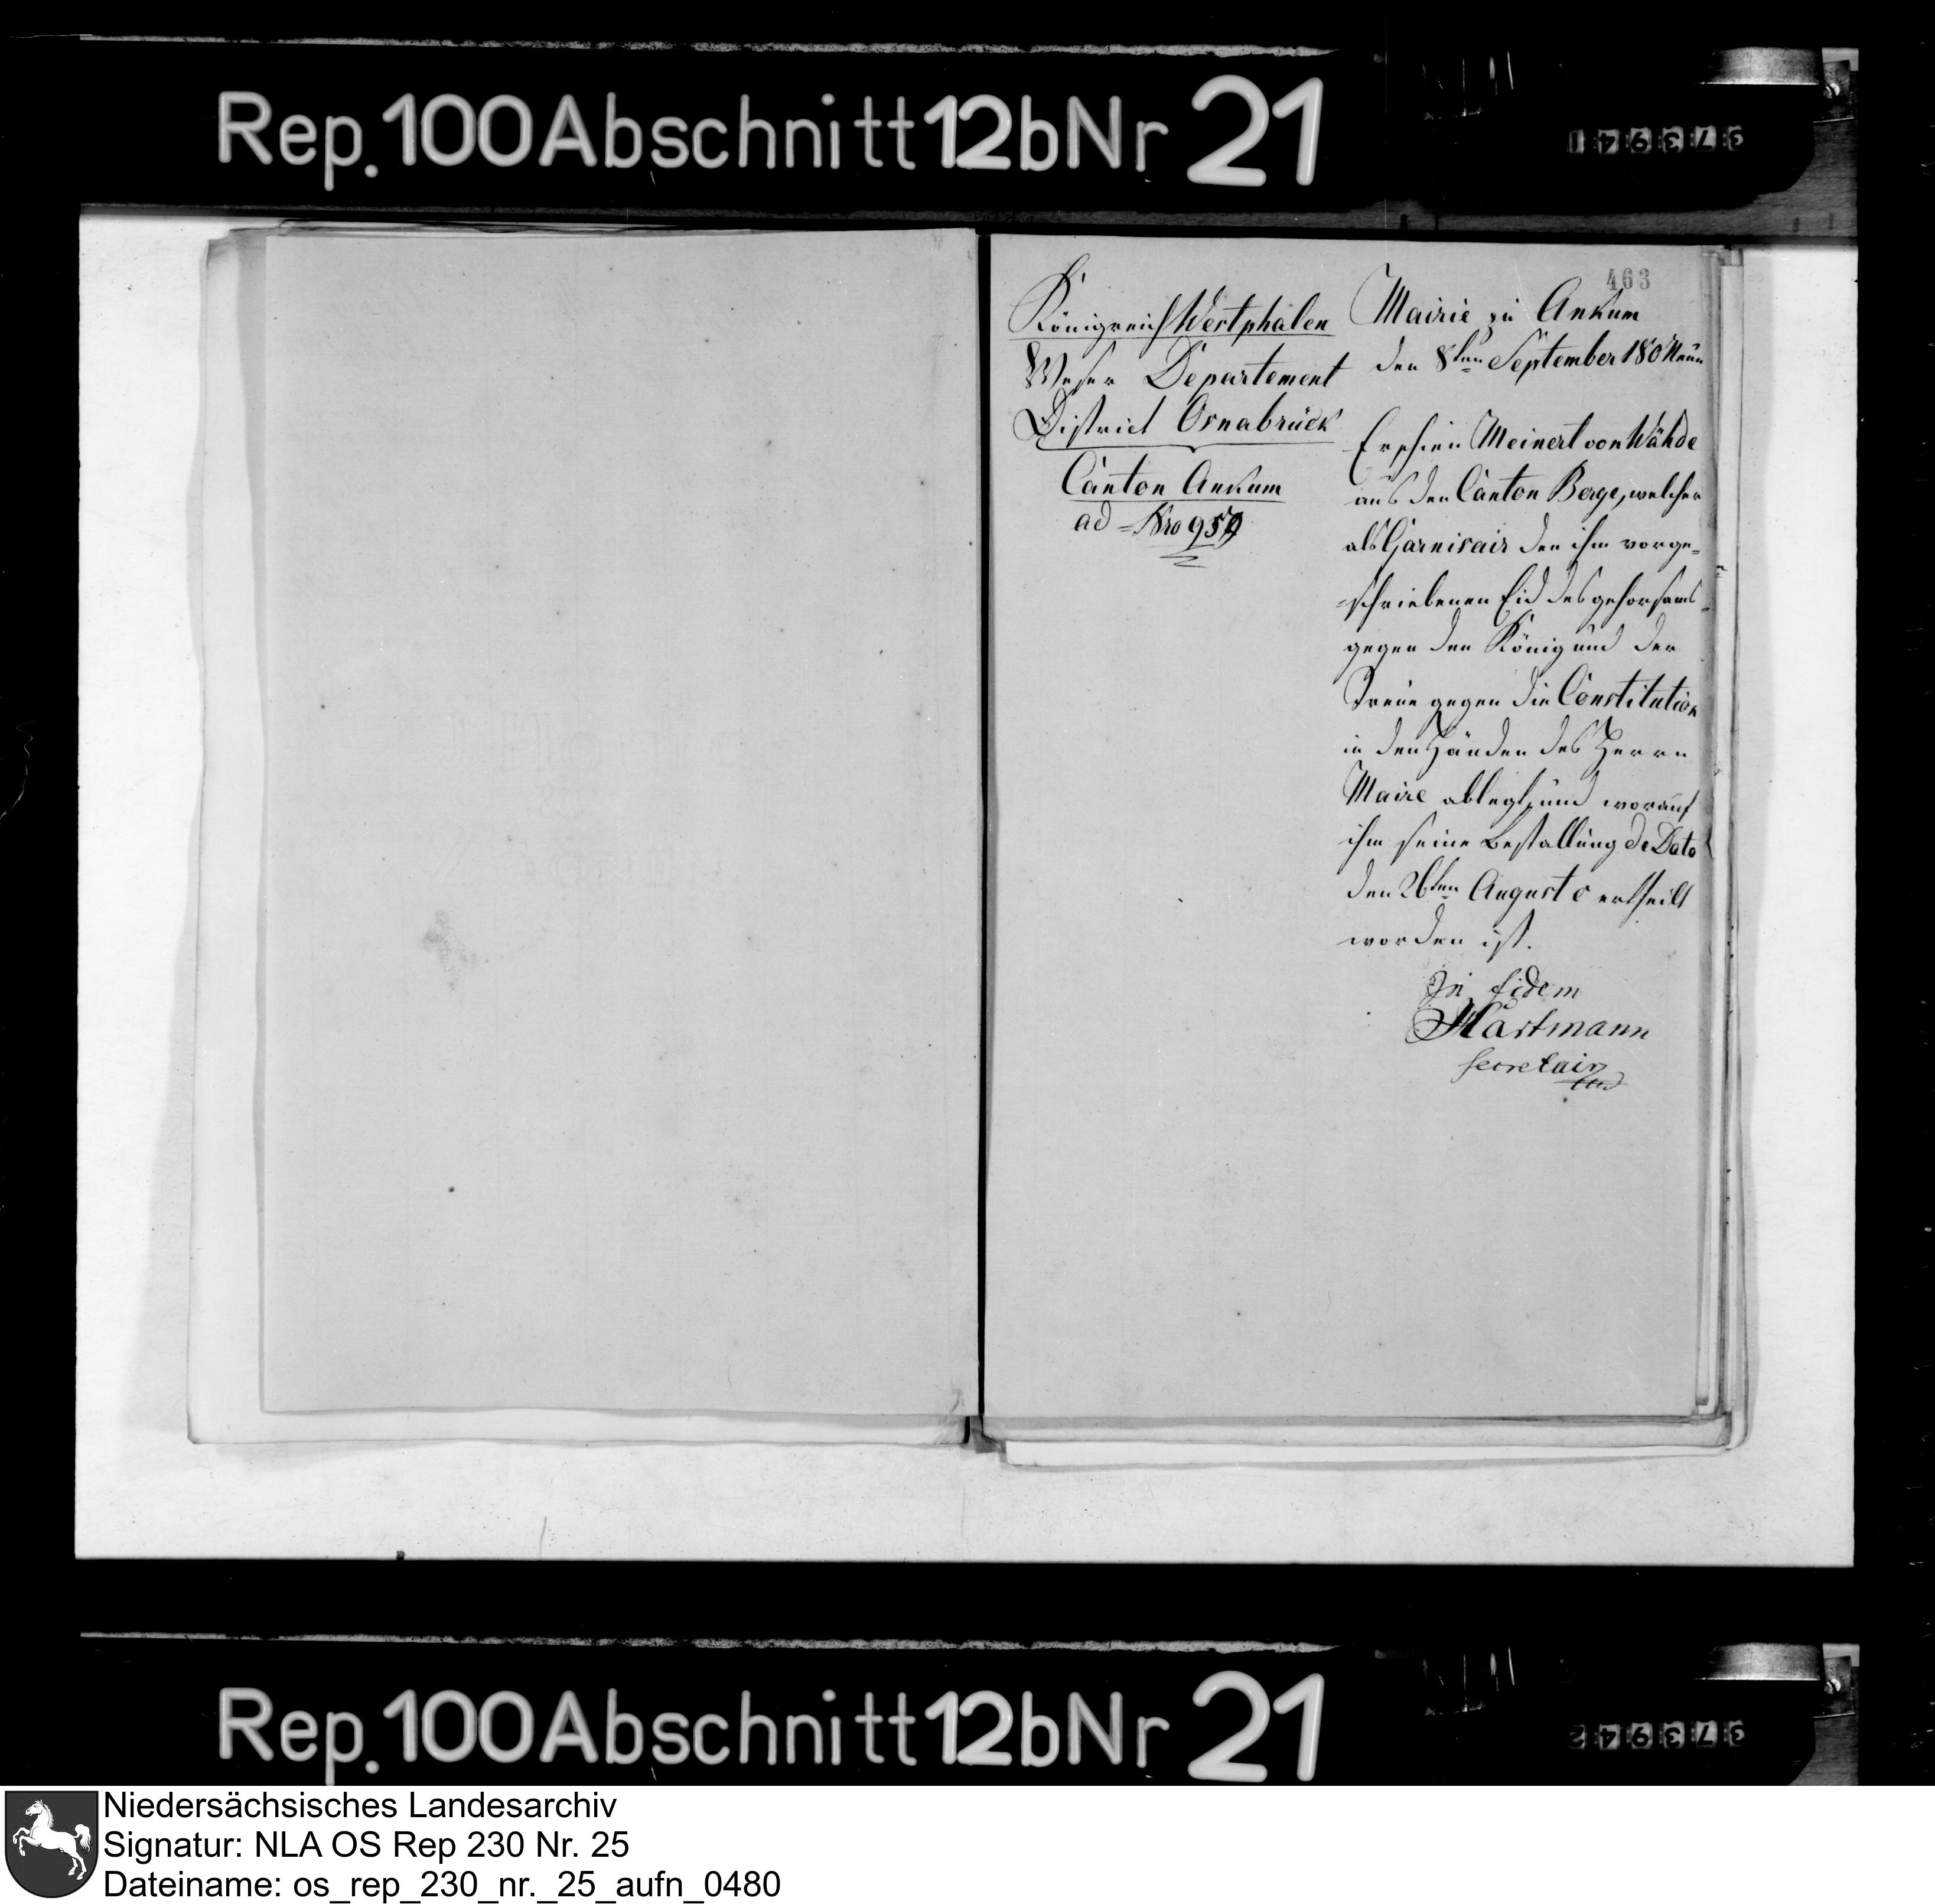 Rep.100Abschnitt12bNr 21
373941
463
Königreich Westphalen
Weser Departement
District Osnabrück
Canton Ankum
ad Nro 959
Mairie zu Ankum
den 8ten September 180Neun
Erschien Meinert von Wähde
aus den Canton Berge, welcher
als Garnisair den ihm vorge=
=schriebenen Eid des gehorsams
gegen den König und der
Treue gegen die Constitution
in den Händen des Herrn
Maire ablegt, und worauf
ihm seine Bestallung de Dato
den 26ten Augusto ertheilt
worden ist.
In fidem
Hartmann
secretair
Rep.100Abschnitt12bNr 21
373942
Niedersächsisches Landesarchiv
Signatur: NLA OS Rep 230 Nr. 25
Dateiname: os_rep_230_nr._25_aufn_0480